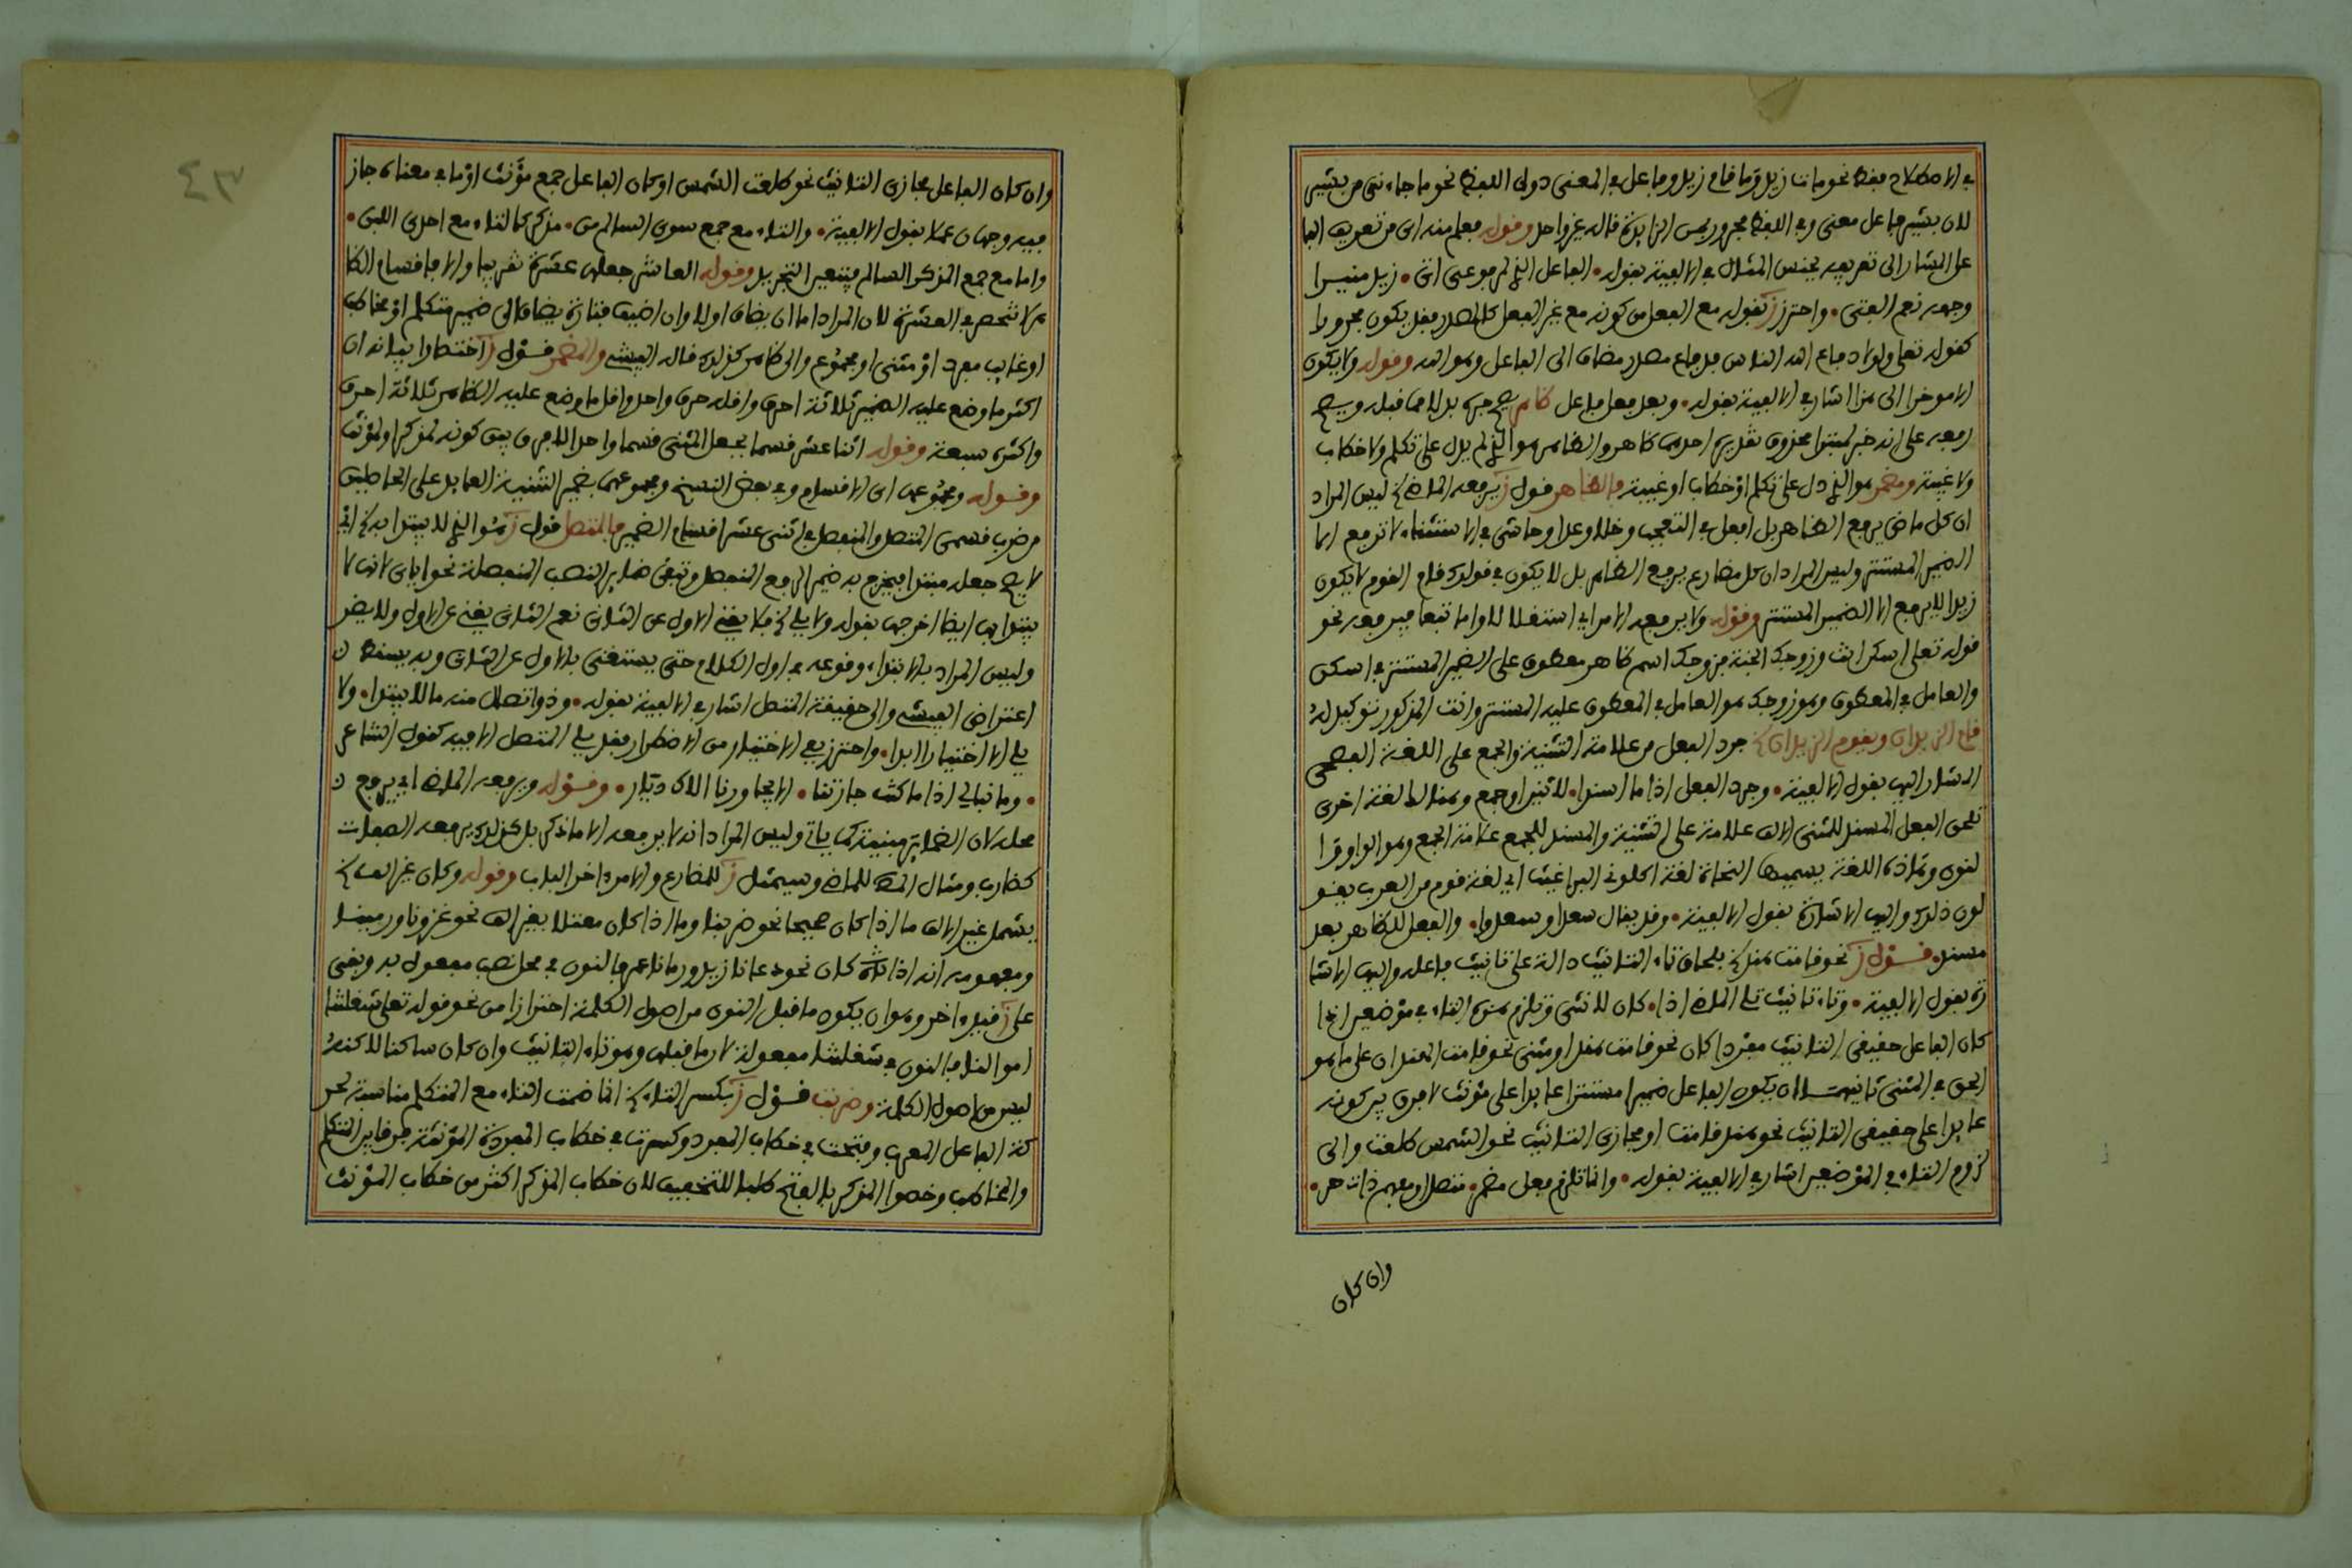 في الاصطلاح فقط نحو مات زيد وما قام زيد وفاعل في المعنى دون اللفظ نحو ما جاءني من بشير
لان بشير فاعل معنى وفي اللفظ مجرور بمن الزايدة قاله غير واحد وقوله فعلم منه اي من تعريف الفا
عل المشار الى تعريفه بجنس المثال في الالفية بقوله • الفاعل الذي كمرفوعي اتى • زيد منيرا
وجهه نعم الفتى • واحترز ز بقوله مع الفعل من كونه مع غير الفعل كالمصدر فقد يكون مجرورا
كقوله تعلى ولولا دفاع الله الناس فدفاع مصدر مضاف الى الفاعل وهو الله وقوله ولا يكون
الا موخرا الى هذا اشار في الالفية بقوله • وبعد فعل فاعل ظاهر يصح جره بدلا مما قبله ويصح
رفعه على انه خبر لمبتدا محذوف تقديره احدهما ظاهر والظاهر هو الذي لم يدل على تكلم ولا خطاب
ولا غيبة ومضمر هو الذي دل على تكلم او خطاب او غيبة فالظاهر قول ز يرفعه الماضي ليس المراد
ان كل ماض يرفع الظاهر بل افعل في التعجب وخلا وعدا وحاشى في الاستثناء لا ترفع الا
الضمير المستتر وليس المراد ان كل مضارع يرفع الظاهر بل لا يكون في قولك قام القوم لا يكون
زيدا لا يرفع الا الضمير المستتر وقوله ولا يرفعه الامر اي استقلالا واما تبعا فيرفعه نحو
قوله تعلى اسكن انت وزوجك الجنة فزوجك اسم ظاهر معطوف على الضمير المستتر في اسكن
والعامل في المعطوف وهو زوجك هو العامل في المعطوف عليه المستتر وانت المذكور توكيد له
قام الزيدان ويقوم الزيدان جرد الفعل من علامة التثنية والجمع على اللغة الفصحى
المشار اليها بقول الالفية • وجرد الفعل اذا ما اسندا • لاثنين او جمع وهنالك لغة اخرى
تلحق الفعل المسند للمثنى الالف علامة على التثنية والمسند للجمع علامة الجمع وهو الواو والـ
لنون وهاذه اللغة يسميها النحاة لغة اكلوني البراغيث اي لغة قوم من العرب يقو
لون ذلك واليها الاشارة بقول الالفية • وقد يقال سعدا وسعدوا • والفعل للظاهر بعد
مسند • قول ز نحو قامت هند بلحاق تاء التانيث دالة على تانيث فاعله واليها الاشا
رة بقول الالفية • وتاء تانيث تلي الماضي اذا • كان لانثى وتلزم هذه التاء في موضعين اذا
كان الفاعل حقيقي التانيث مفردا كان نحو قامت هند او مثنى نحو قامت الهندان على ما هو
الحق في المثنى ثانيهما ان يكون الفاعل ضميرا مستترا عايدا على مونث لا فرق بين كونه
عايدا على حقيقي التانيث نحو هند قامت او مجازي التانيث نحو الشمس طلعت والى
لزوم التاء في الموضعين اشار في الالفية بقوله • وانما تلزم فعل مضمر • متصل او مفهم ذات حر •
وان كان
٤٣
وان كان الفاعل مجازي التانيث نحو طلعت الشمس او كان الفاعل جمع مؤنث او ما في معناه جاز
فيه وجهان عملا بقول الالفية • والتاء مع جمع سوى السالم من • مذكر كالتاء مع احدى اللبن •
واما مع جمع المذكر السالم فيتعين التجريد وقوله العاشر جعلها عشرة تقريبا والا فاقسام الظا
هر لا تنحصر في العشرة لان المراد اما ان يضاف اولا وان اضيف فتارة يضاف الى ضمير متكلم او مخاطب
او غايب مفرد او مثنى او مجموع والى ظاهر كذلك قاله الفيشي والمضمر قول ز اختصارا بيانه ان
اكثر ما وضع عليه الضمير ثلاثة احرف واقله حرف واحد واقل ما وضع عليه الظاهر ثلاثة احرف
واكثره سبعة وقوله اثنا عشر قسما بجعل المثنى قسما واحدا لا فرق بين كونه لمذكر او لمؤنث
وقوله ومجموعها اي الاقسام وفي بعض النسخ ومجموعهما بضمير التثنية العايد على الحاصلين
من ضرب قسمي المتصل والمنفصل في اثنى عشر اقسام الضمير فالمتصل قول ز هو الذي لا يبتدا به اي
لا يصح جعله مبتدا فيخرج به ضمير الرفع المنفصل وتبقى ضماير النصب المنفصلة نحو اياي لانها لا
يبتدا بها ايضا اخرجها بقوله ولا يلي فلا يغني الاول عن الثاني نعم الثاني يغني عن الاول ولا يضر
وليس المراد بالابتداء وقوعه في اول الكلام حتى يستغنى بالاول عن الثاني وبه يسقط
اعتراض الفيشي والى حقيقة المتصل اشار في الالفية بقوله • وذو اتصال منه ما لا يبتدا • ولا
يلي الا اختيارا ابدا • واحترز بفي الاختيار من الاضطرار فقد يلي المتصل الا فيه كقول الشاعر
• وما نبالي اذا ما كنت جارتنا • الا يجاورنا الاك ديار • وقوله ويرفعه الماضي اي يرفع
محله لان الضماير مبنية كما ياتي وليس المراد انه لا يرفعه الا ما ذكر بل كذلك يرفعه الصفات
كضارب ومثال المص للماضي وسيمثل ز للمضارع والامر اخر الباب وقوله وكان غير الف
يشمل غير الالف ما اذا كان صحيحا نحو ضربنا وما اذا كان معتلا بغير الف نحو غزونا ورمينا
ومفهومه انه اذا كان نحو دعانا زيد ورمانا عمر فالنون في محل نصب مفعول به وبقي
على ز قيد اخر وهو ان يكون ما قبل النون من اصول الكلمة احترازا من نحو قوله تعلى شغلتنا
اموالنا فالنون في شغلتنا مفعولة لان ما قبلها وهو تاء التانيث وان كان ساكنا لاكنه
ليس من اصول الكلمة وضربت قول ز بكسر التاء انما ضمت التاء مع المتكلم مناسبة لحر
كة الفاعل المعرب وفتحت في خطاب المفرد وكسرت في خطاب المفردة المؤنثة فرقا بين المتكلم
والمخاطب وخصوا المذكر بالفتح طلبا للتخفيف لان خطاب المذكر اكثر من خطاب المؤنث